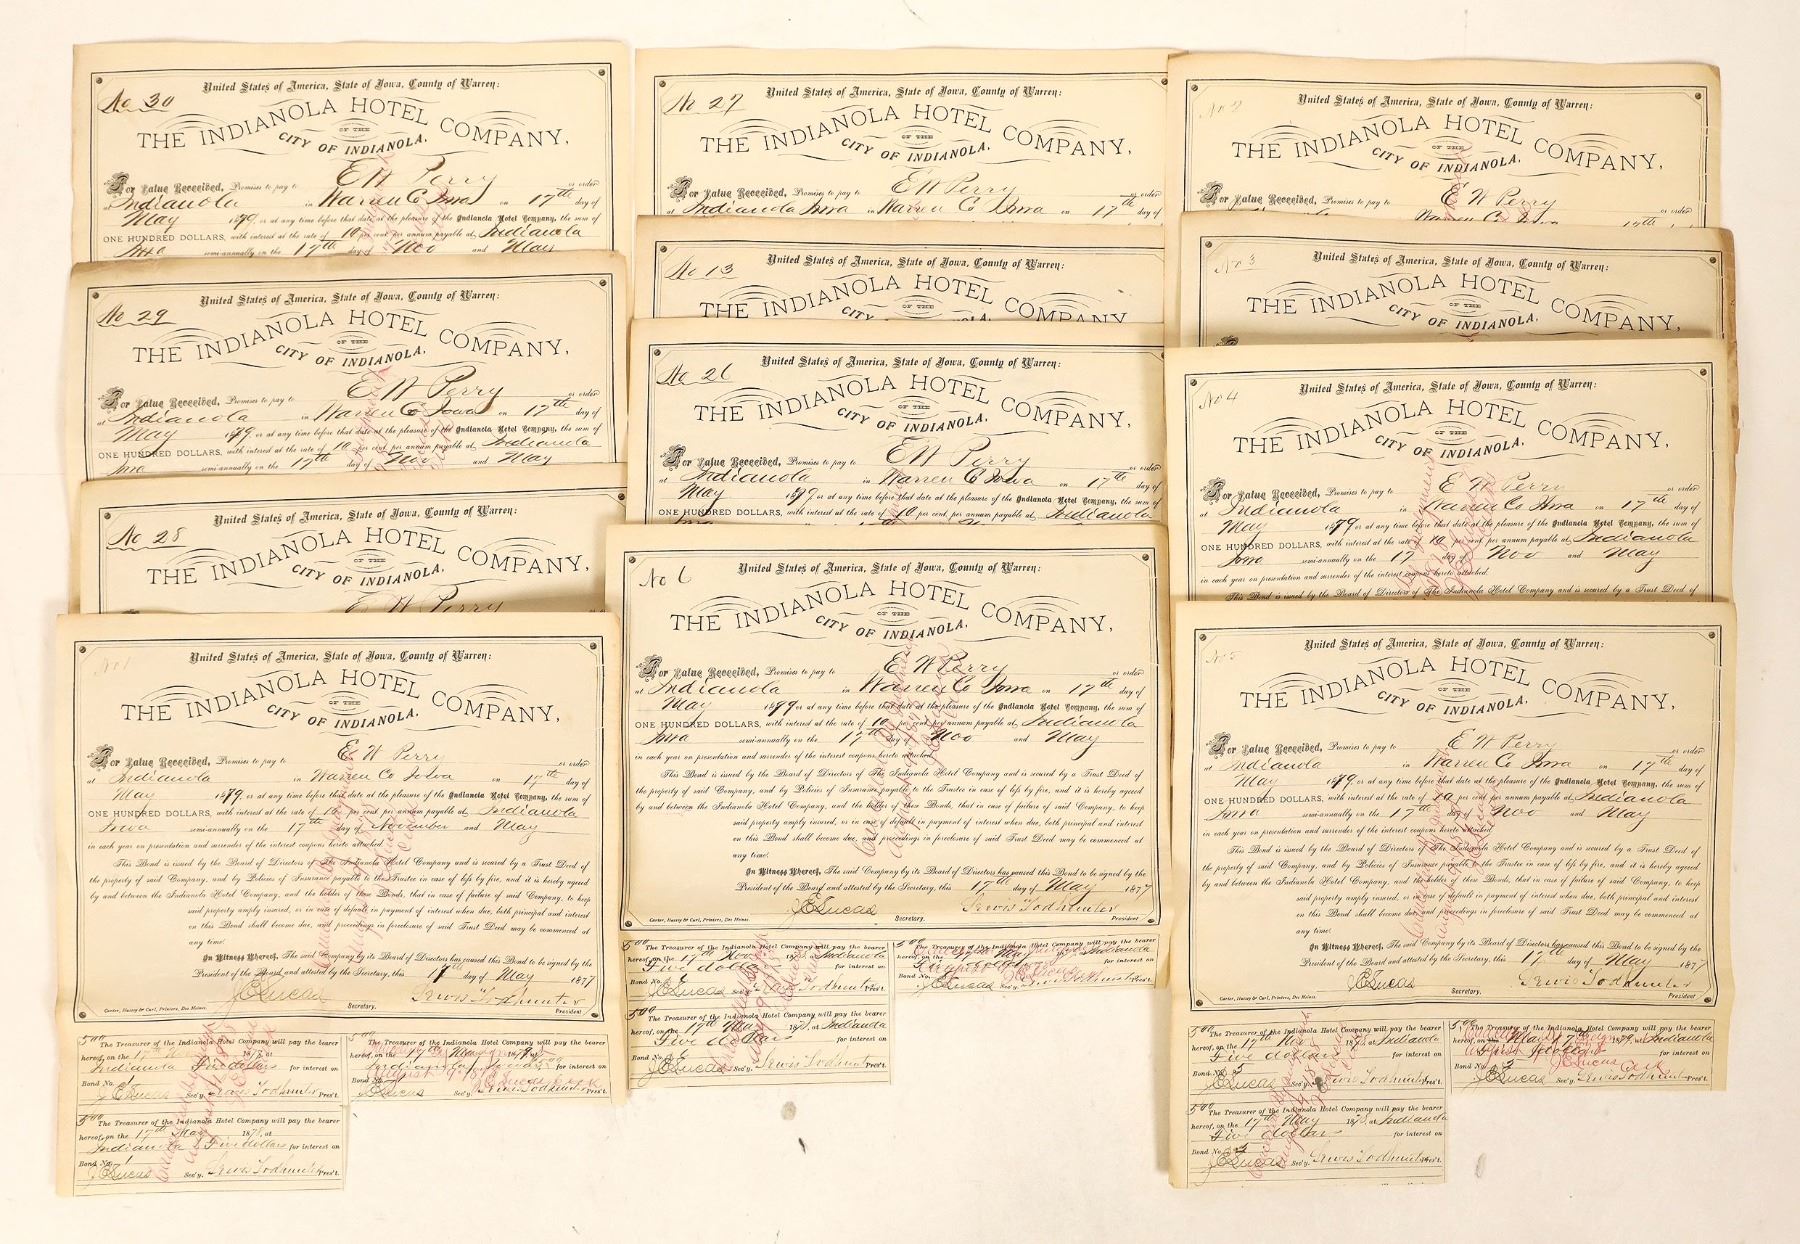 No 30
United States of America, State of Iowa, County of Warren:
THE INDIANOLA HOTEL COMPANY,
OF THE
CITY OF INDIANOLA.
For Value Received, Promises to pay to E W Perry or order
at Indianola in Warren Co Iowa on 17th day of
May 1879 or at any time before that date at the pleasure of the Indianola Hotel Company, the sum of
ONE HUNDRED DOLLARS, with interest at the rate of 10 per cent per annum payable at Indianola
Iowa semi-annually on the 17th day of Nov and May
No 29
United States of America, State of Iowa, County of Warren:
THE INDIANOLA HOTEL COMPANY,
OF THE
CITY OF INDIANOLA.
For Value Received, Promises to pay to E W Perry or order
at Indianola in Warren Co Iowa on 17th day of
May 1879 or at any time before that date at the pleasure of the Indianola Hotel Company, the sum of
ONE HUNDRED DOLLARS, with interest at the rate of 10 per cent per annum payable at Indianola
Iowa semi-annually on the 17th day of Nov and May
No 28
United States of America, State of Iowa, County of Warren:
THE INDIANOLA HOTEL COMPANY,
OF THE
CITY OF INDIANOLA.
E W Perry
No 1
United States of America, State of Iowa, County of Warren:
THE INDIANOLA HOTEL COMPANY,
OF THE
CITY OF INDIANOLA.
For Value Received, Promises to pay to E W Perry or order
at Indianola in Warren Co Iowa on 17th day of
May 1879 or at any time before that date at the pleasure of the Indianola Hotel Company, the sum of
ONE HUNDRED DOLLARS, with interest at the rate of 10 per cent per annum payable at Indianola
Iowa semi-annually on the 17th day of November and May
in each year on presentation and surrender of the interest coupons hereto attached.
This Bond is issued by the Board of Directors of The Indianola Hotel Company and is secured by a Trust Deed of
the property of said Company, and by Policies of Insurance payable to the Trustee in case of loss by fire, and it is hereby agreed
by and between the Indianola Hotel Company, and the holder of these Bonds, that in case of failure of said Company, to keep
said property amply insured, or in case of default in payment of interest when due, both principal and interest
on this Bond shall become due, and proceedings in foreclosure of said Trust Deed may be commenced at
any time.
In Witness Whereof, The said Company by its Board of Directors has caused this Bond to be signed by the
President of the Board and attested by the Secretary, this 17th day of May 1877
J E Lucas Secretary. Lewis Todhunter President
Carter, Hussey & Curl, Printers, Des Moines.
5.00 The Treasurer of the Indianola Hotel Company will pay the bearer
hereof, on the 17th Nov 1878, at
Indianola Five dollars for interest on
Bond No. 1
J E Lucas Sec'y. Lewis Todhunter Pres't.
5.00 The Treasurer of the Indianola Hotel Company will pay the bearer
hereof, on the 17th May 1879, at
Indianola for interest on
Bond No. 1
J E Lucas Sec'y. Lewis Todhunter Pres't.
5.00 The Treasurer of the Indianola Hotel Company will pay the bearer
hereof, on the 17th May 1878, at
Indianola Five dollars for interest on
Bond No. 1
J E Lucas Sec'y. Lewis Todhunter Pres't.
No 27
United States of America, State of Iowa, County of Warren:
THE INDIANOLA HOTEL COMPANY,
OF THE
CITY OF INDIANOLA.
For Value Received, Promises to pay to E W Perry or order
at Indianola Iowa in Warren Co Iowa on 17th day of
No 13
United States of America, State of Iowa, County of Warren:
THE INDIANOLA HOTEL COMPANY
OF THE
CITY OF INDIANOLA.
No 26
United States of America, State of Iowa, County of Warren:
THE INDIANOLA HOTEL COMPANY,
OF THE
CITY OF INDIANOLA.
For Value Received, Promises to pay to E W Perry or order
at Indianola in Warren Co Iowa on 17th day of
May 1879 or at any time before that date at the pleasure of the Indianola Hotel Company, the sum of
ONE HUNDRED DOLLARS, with interest at the rate of 10 per cent. per annum payable at Indianola
No 6
United States of America, State of Iowa, County of Warren:
THE INDIANOLA HOTEL COMPANY,
OF THE
CITY OF INDIANOLA.
For Value Received, Promises to pay to E W Perry or order
at Indianola in Warren Co Iowa on 17th day of
May 1879 or at any time before that date at the pleasure of the Indianola Hotel Company, the sum of
ONE HUNDRED DOLLARS, with interest at the rate of 10 per cent per annum payable at Indianola
Iowa semi-annually on the 17th day of Nov and May
in each year on presentation and surrender of the interest coupons hereto attached.
This Bond is issued by the Board of Directors of The Indianola Hotel Company and is secured by a Trust Deed of
the property of said Company, and by Policies of Insurance payable to the Trustee in case of loss by fire, and it is hereby agreed
by and between the Indianola Hotel Company, and the holder of these Bonds, that in case of failure of said Company, to keep
said property amply insured, or in case of default in payment of interest when due, both principal and interest
on this Bond shall become due, and proceedings in foreclosure of said Trust Deed may be commenced at
any time.
In Witness Whereof, The said Company by its Board of Directors has caused this Bond to be signed by the
President of the Board and attested by the Secretary, this 17th day of May 1877
J E Lucas Secretary. Lewis Todhunter President
Carter, Hussey & Curl, Printers, Des Moines.
5.00 The Treasurer of the Indianola Hotel Company will pay the bearer
hereof, on the 17th Nov 1878, at Indianola
Five dollars for interest on
Bond No. 6
J E Lucas Sec'y. Lewis Todhunter Pres't.
5.00 The Treasurer of the Indianola Hotel Company will pay the bearer
hereof, on the 17th May 1879, at Indianola
for interest on
Bond No.
J E Lucas Sec'y. Lewis Todhunter Pres't.
5.00 The Treasurer of the Indianola Hotel Company will pay the bearer
hereof, on the 17th May 1878, at Indianola
Five dollars for interest on
Bond No. 6
J E Lucas Sec'y. Lewis Todhunter Pres't.
No 2
United States of America, State of Iowa, County of Warren:
THE INDIANOLA HOTEL COMPANY,
OF THE
CITY OF INDIANOLA.
For Value Received, Promises to pay to E W Perry or order
Warren Co Iowa
No 3
United States of America, State of Iowa, County of Warren:
THE INDIANOLA HOTEL COMPANY,
OF THE
CITY OF INDIANOLA.
No 4
United States of America, State of Iowa, County of Warren:
THE INDIANOLA HOTEL COMPANY,
OF THE
CITY OF INDIANOLA.
For Value Received, Promises to pay to E W Perry or order
at Indianola in Warren Co Iowa on 17th day of
May 1879 or at any time before that date at the pleasure of the Indianola Hotel Company, the sum of
ONE HUNDRED DOLLARS, with interest at the rate of 10 per cent per annum payable at Indianola
Iowa semi-annually on the 17 day of Nov and May
in each year on presentation and surrender of the interest coupons hereto attached.
This Bond is issued by the Board of Directors of The Indianola Hotel Company and is secured by a Trust Deed of
No 5
United States of America, State of Iowa, County of Warren:
THE INDIANOLA HOTEL COMPANY,
OF THE
CITY OF INDIANOLA.
For Value Received, Promises to pay to E W Perry or order
at Indianola in Warren Co Iowa on 17th day of
May 1879 or at any time before that date at the pleasure of the Indianola Hotel Company, the sum of
ONE HUNDRED DOLLARS, with interest at the rate of 10 per cent per annum payable at Indianola
Iowa semi-annually on the 17th day of Nov and May
in each year on presentation and surrender of the interest coupons hereto attached.
This Bond is issued by the Board of Directors of The Indianola Hotel Company and is secured by a Trust Deed of
the property of said Company, and by Policies of Insurance payable to the Trustee in case of loss by fire, and it is hereby agreed
by and between the Indianola Hotel Company, and the holder of these Bonds, that in case of failure of said Company, to keep
said property amply insured, or in case of default in payment of interest when due, both principal and interest
on this Bond shall become due, and proceedings in foreclosure of said Trust Deed may be commenced at
any time.
In Witness Whereof, The said Company by its Board of Directors has caused this Bond to be signed by the
President of the Board and attested by the Secretary, this 17th day of May 1877
J E Lucas Secretary. Lewis Todhunter President
Carter, Hussey & Curl, Printers, Des Moines.
5.00 The Treasurer of the Indianola Hotel Company will pay the bearer
hereof, on the 17th Nov 1878, at Indianola
Five dollars for interest on
Bond No. 5
J E Lucas Sec'y. Lewis Todhunter Pres't.
5.00 The Treasurer of the Indianola Hotel Company will pay the bearer
hereof, on the May 17th 1879, at Indianola
for interest on
Bond No. 5
J E Lucas Sec'y. Lewis Todhunter Pres't.
5.00 The Treasurer of the Indianola Hotel Company will pay the bearer
hereof, on the 17th May 1878, at Indianola
Five dollars for interest on
Bond No. 5
J E Lucas Sec'y. Lewis Todhunter Pres't.